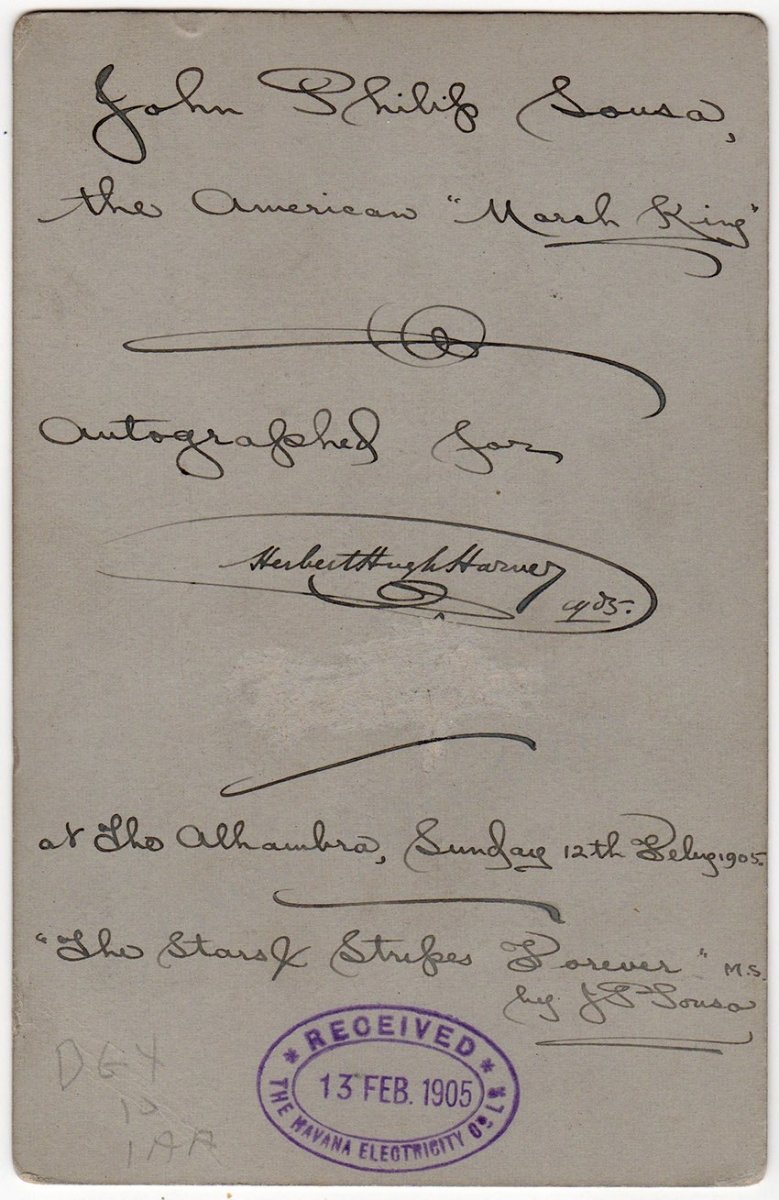 John Philip Sousa,
the American "March King"
Autographed for
Herbert Hugh Harvey
1905.
at The Alhambra, Sunday 12th Feby 1905.
"The Stars & Stripes Forever" M.S.
by J P Sousa
* RECEIVED *
13 FEB. 1905
THE HAVANA ELECTRICITY Co Ld